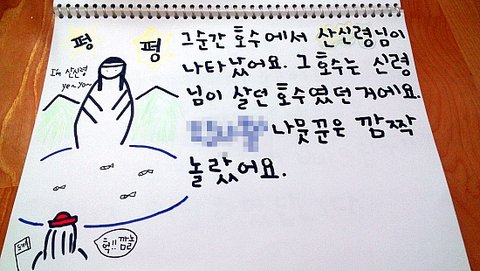 펑 펑
I'm 산신령
ye~ Yo~
그순간 호수에서 산신령님이
나타났어요. 그 호수는 신령
님이 살던 호수였던 거에요.
나뭇꾼은 깜짝
놀랐어요.
헉!! 깜놀